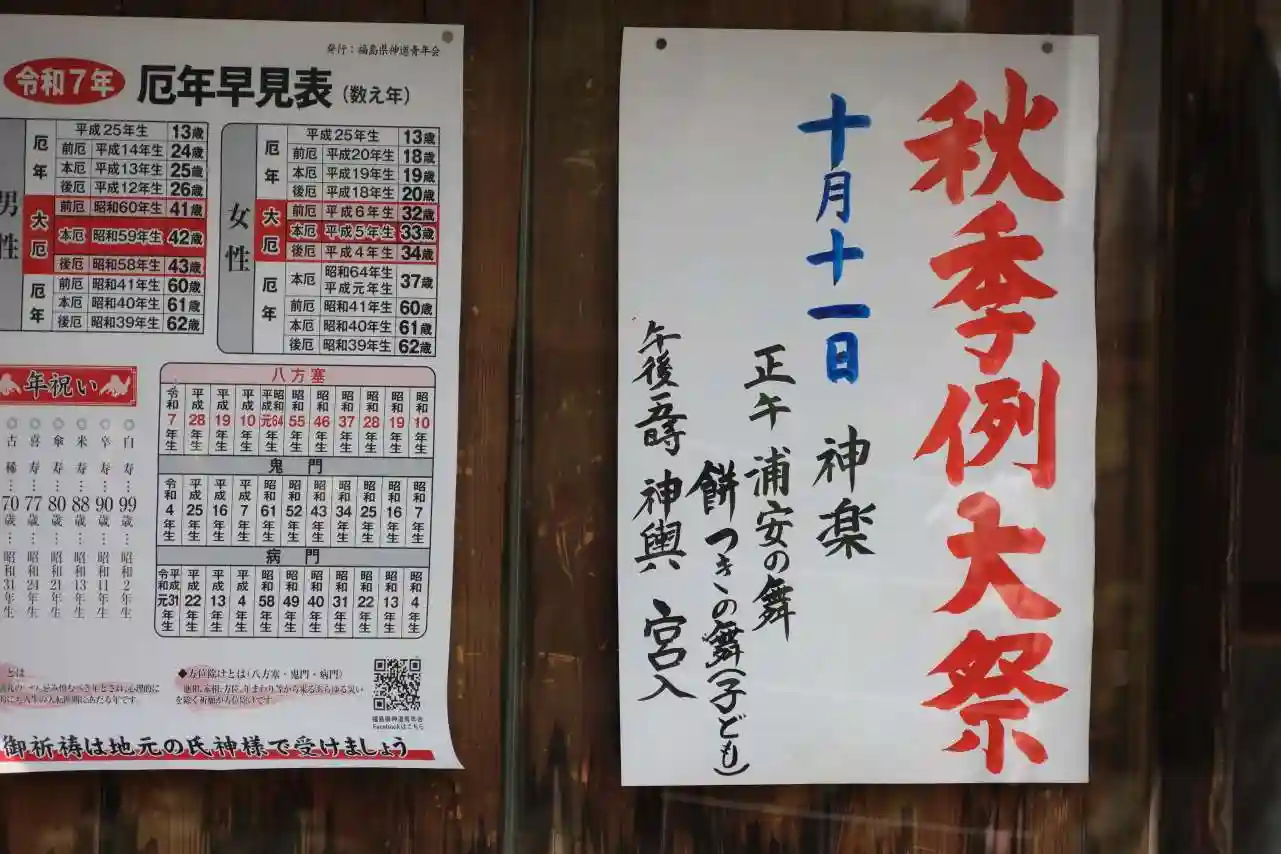 発行:福島県神道青年会
令和7年 厄年早見表(数え年)
男性
厄年
平成25年生 13歳
前厄 平成14年生 24歳
本厄 平成13年生 25歳
後厄 平成12年生 26歳
大厄
前厄 昭和60年生 41歳
本厄 昭和59年生 42歳
後厄 昭和58年生 43歳
厄年
前厄 昭和41年生 60歳
本厄 昭和40年生 61歳
後厄 昭和39年生 62歳
女性
厄年
平成25年生 13歳
前厄 平成20年生 18歳
本厄 平成19年生 19歳
後厄 平成18年生 20歳
大厄
前厄 平成6年生 32歳
本厄 平成5年生 33歳
後厄 平成4年生 34歳
厄年
本厄 昭和64年生 平成元年生 37歳
前厄 昭和41年生 60歳
本厄 昭和40年生 61歳
後厄 昭和39年生 62歳
年祝い
白寿…99歳…昭和2年生
卒寿…90歳…昭和11年生
米寿…88歳…昭和13年生
傘寿…80歳…昭和21年生
喜寿…77歳…昭和24年生
古稀…70歳…昭和31年生
八方塞
昭和10年生
昭和19年生
昭和28年生
昭和37年生
昭和46年生
昭和55年生
昭和64年生 平成元年生
平成10年生
平成19年生
平成28年生
令和7年生
鬼門
昭和7年生
昭和16年生
昭和25年生
昭和34年生
昭和43年生
昭和52年生
昭和61年生
平成7年生
平成16年生
平成25年生
令和4年生
病門
昭和4年生
昭和13年生
昭和22年生
昭和31年生
昭和40年生
昭和49年生
昭和58年生
平成4年生
平成13年生
平成22年生
平成31年生 令和元年生
とは
◆方位除けとは(八方塞・鬼門・病門)
地相、家相、方位、年まわり等から来るあらゆる災い
を除く祈願が方位除けです。
福島県神道青年会
Facebookはこちら
御祈祷は地元の氏神様で受けましょう
秋季例大祭
十月十一日 神楽
正午 浦安の舞
餅つきの舞(子ども)
午後五時 神輿 宮入